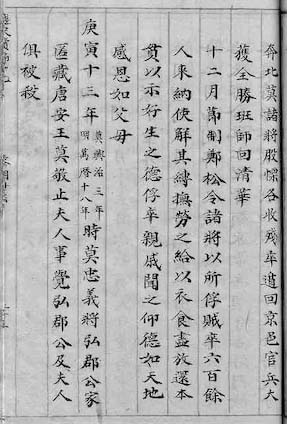 奔北莫諸將股慄各收殘卒遁回京邑官兵大
獲全勝班師回清華
十二月節制鄭松令諸將以所俘賊卒六百餘
人來納使解其縛撫勞之給以衣食盡放還本
貫以示好生之德俘卒親戚聞之仰德如天地
感恩如父母
庚寅十三年莫興治三年明萬曆十八年時莫忠義將弘郡公家
匿藏唐安王莫敬止夫人事覺弘郡公及夫人
俱被殺